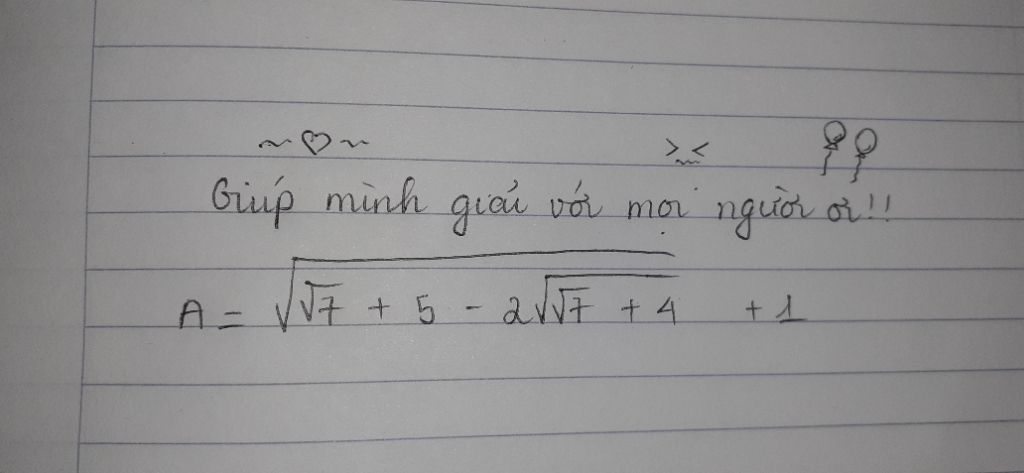 ~♡~ >.<
Giúp mình giải với mọi người ơi!!
A = √(√7 + 5 - 2√(√7 + 4)) + 1